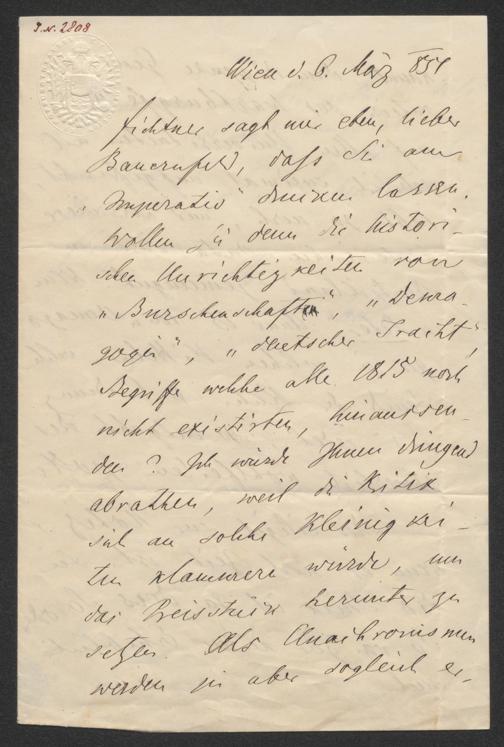 I.N. 2808
Wien d. 6. März 854
Fichtner sagt mir eben, lieber
Bauernfeld, daß Sie am
„Imperativ" drucken lassen.
Wollen Sie denn die histori-
schen Unrichtigkeiten von
„Burschenschaften", „Dema-
gogie", „deutscher Tracht",
Begriffe welche alle 1815 noch
nicht existirten, hinaussen-
den? Ich würde Ihnen dringend
abrathen, weil die Kritik
sich an solche Kleinigkei-
ten klammern würde, um
das Preisstück herunter zu
setzen. Als Anachronismen
werden sie aber sogleich er-